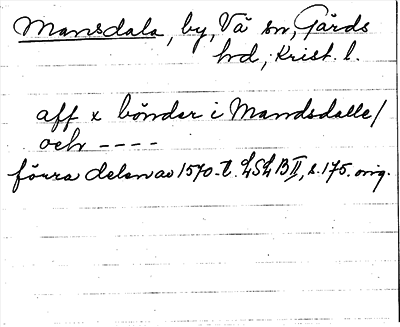 Mansdala, by, Vä sn, Gärds
hd, Krist. l.
aff x bönder i Mandsdalle/
och ----
förra delen av 1570-t. LSLB II, s. 175. orig.